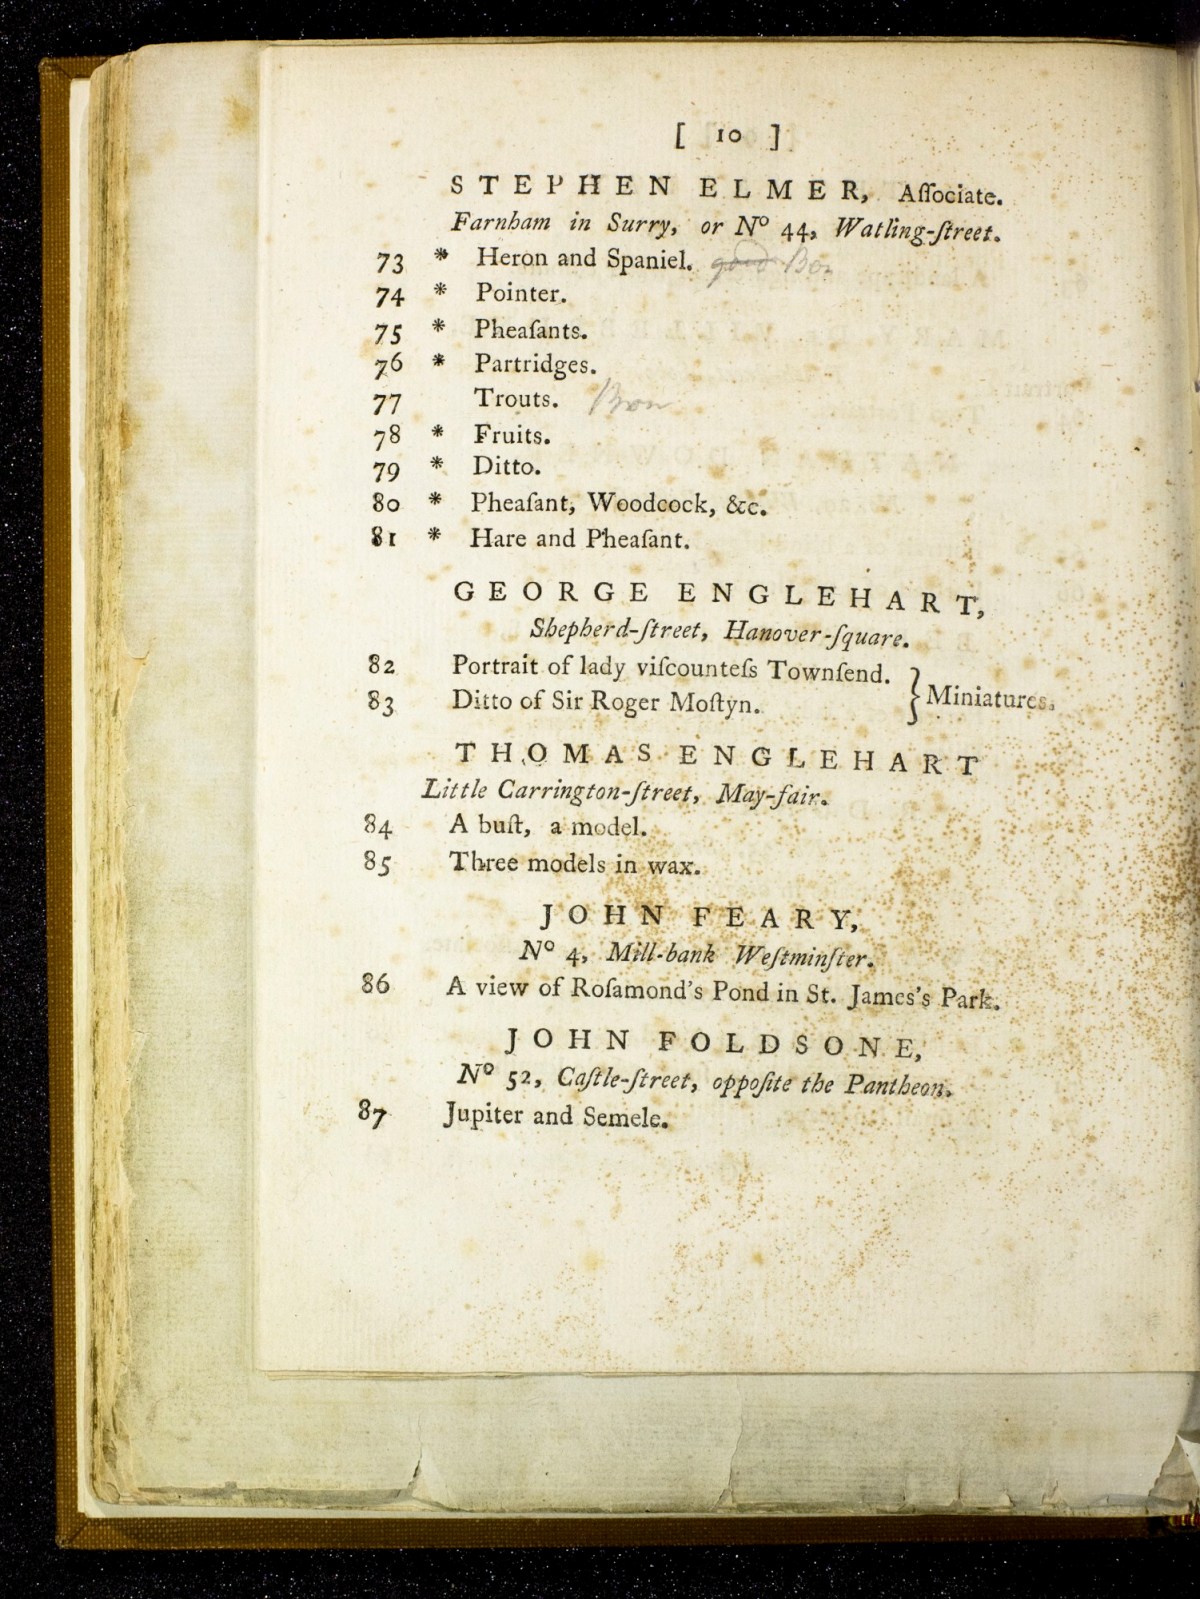 [ 10 ]
STEPHEN ELMER, Aſſociate.
Farnham in Surry, or Nº 44, Watling-ſtreet.
73 * Heron and Spaniel. good
74 * Pointer.
75 * Pheaſants.
76 * Partridges.
77 Trouts.
78 * Fruits.
79 * Ditto.
80 * Pheaſant, Woodcock, &c.
81 * Hare and Pheaſant.
GEORGE ENGLEHART,
Shepherd-ſtreet, Hanover-ſquare.
82 Portrait of lady viſcounteſs Townſend.
83 Ditto of Sir Roger Moſtyn.
} Miniatures.
THOMAS ENGLEHART
Little Carrington-ſtreet, May-fair.
84 A buſt, a model.
85 Three models in wax.
JOHN FEARY,
Nº 4, Mill-bank Weſtminſter.
86 A view of Roſamond's Pond in St. James's Park.
JOHN FOLDSONE,
Nº 52, Caſtle-ſtreet, oppoſite the Pantheon.
87 Jupiter and Semele.